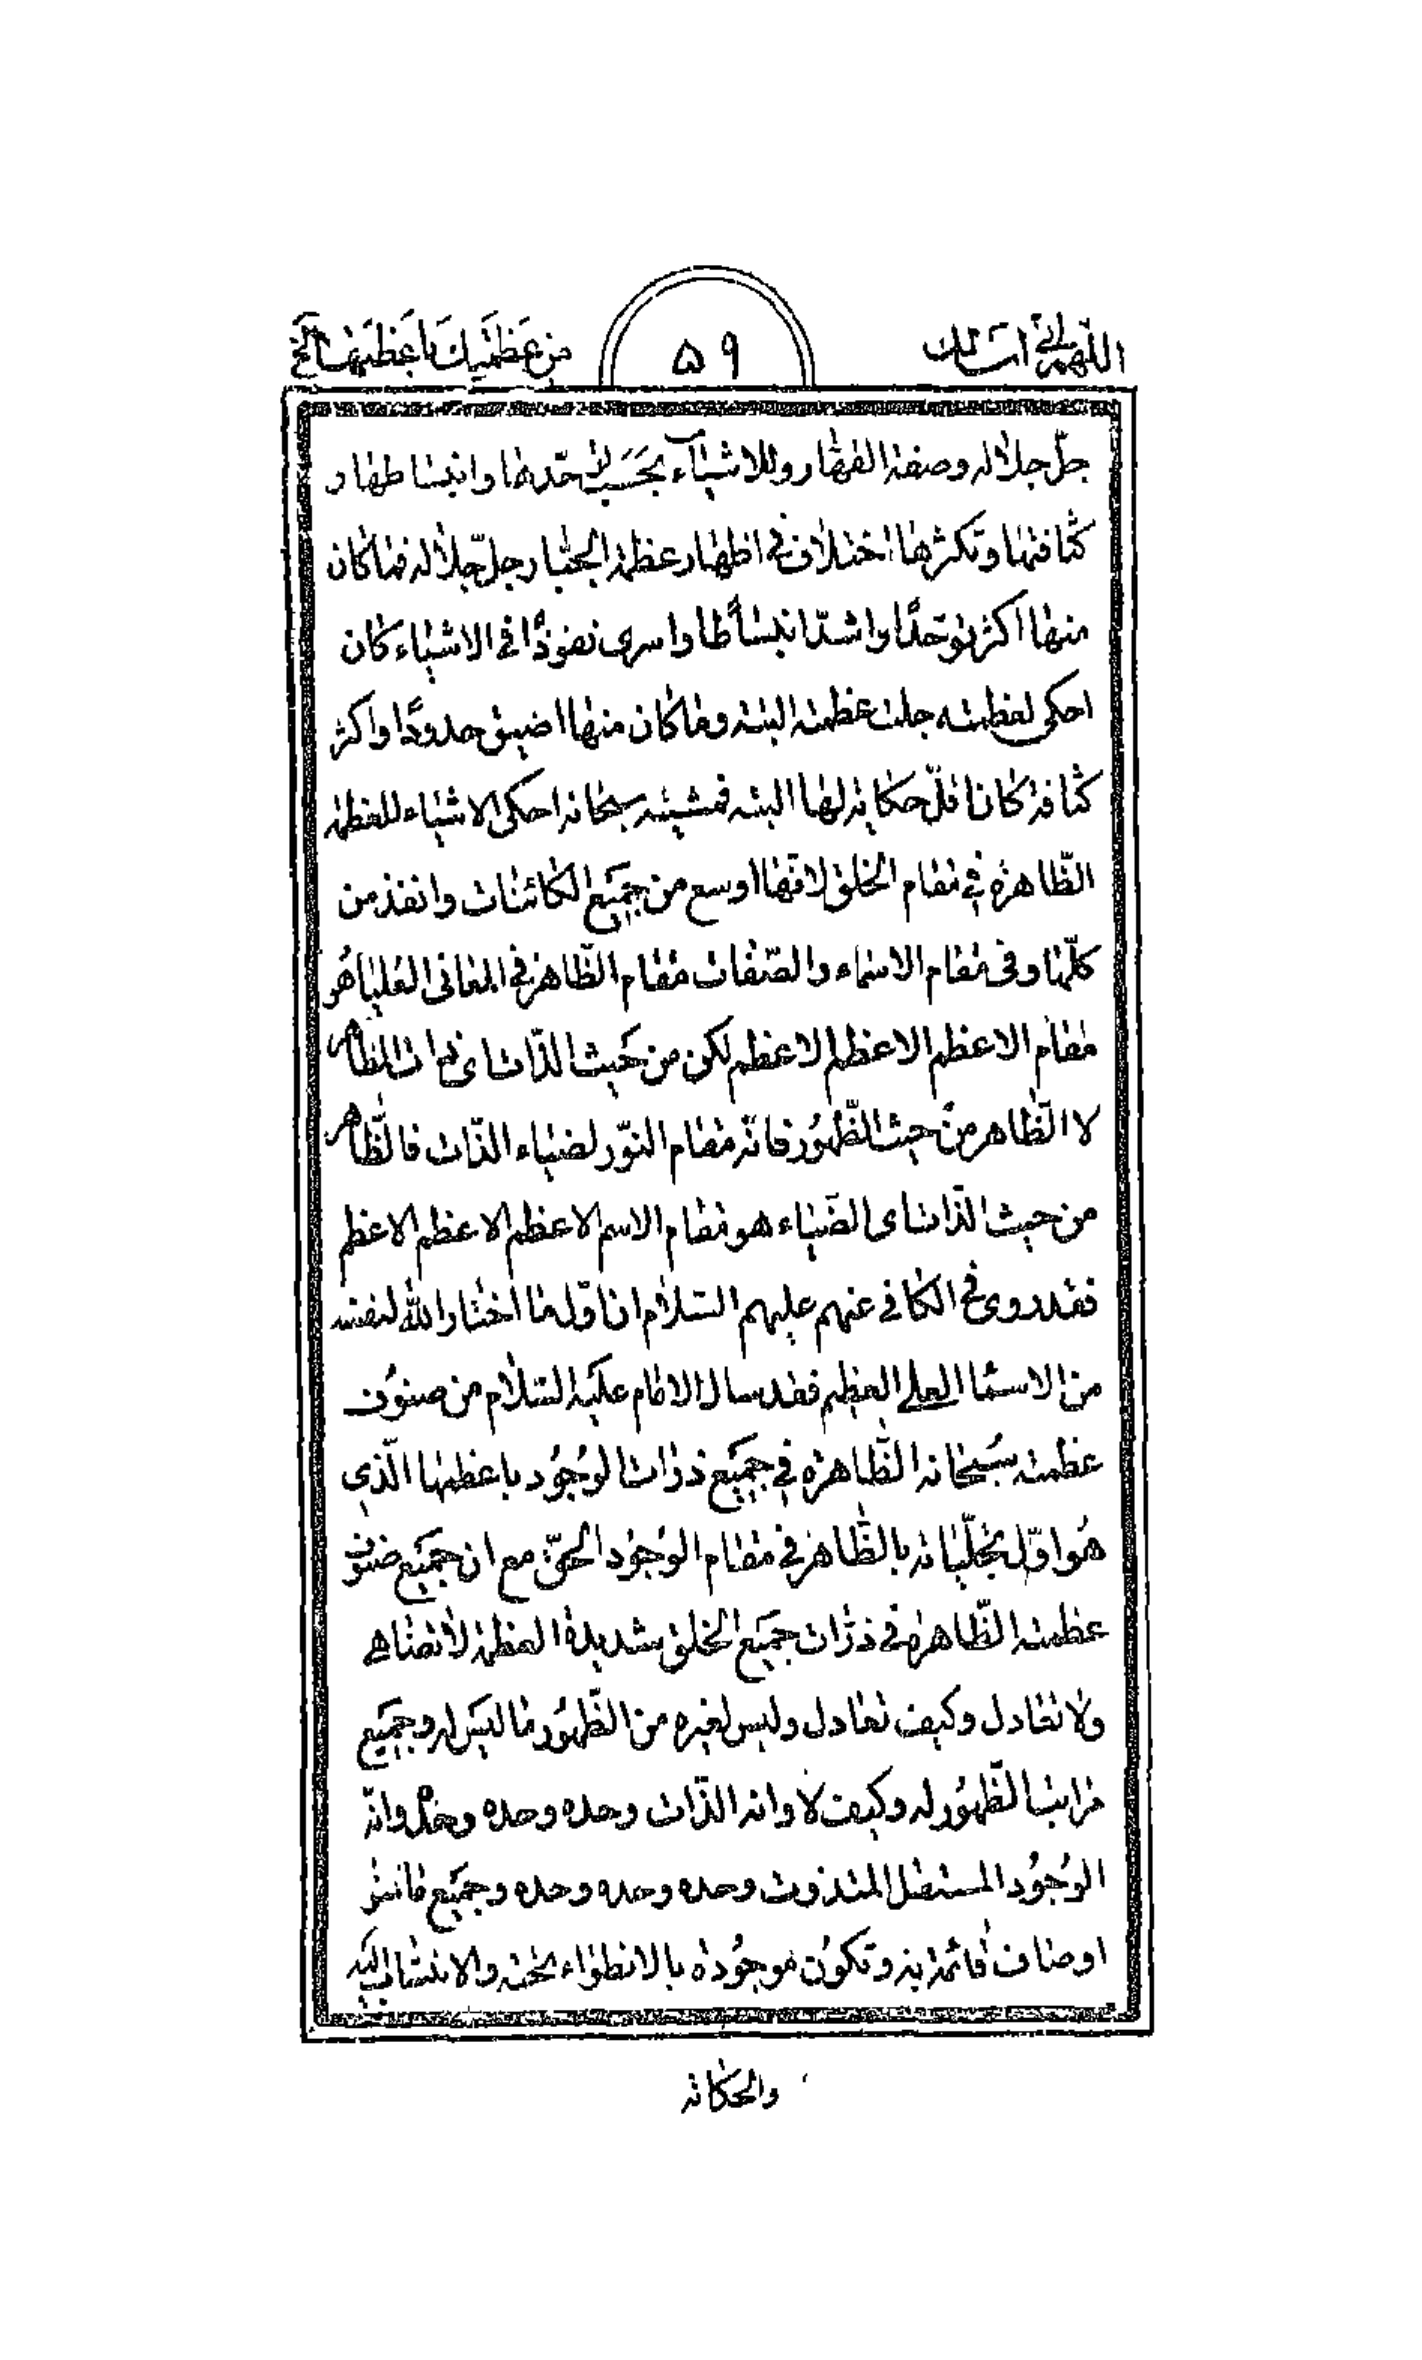 اللّهم انّي اسالك ۵۹ من عظمتك باعظمها الخ
جلّ جلاله وصفة القهار وللاشياء بحسب توحّدها وانبساطها و
كثافتها وتكثرها اختلاف في اظهار عظمة الجبّار جلّ جلاله فما كان
منها اكثر توحدًا واشدّ انبساطًا واسرى نفوذًا في الاشياء كان
احكى لعظمته جلت عظمته البتة وما كان منها اضيق حدودًا واكثر
كثافة كان اقلّ حكاية لها البته فمشيته سبحانه احكى الاشياء للعظمة
الظّاهرة في مقام الخلق لانّها اوسع من جميع الكائنات وانفذ من
كلّها وفى مقام الاسماء والصّفات مقام الظّاهر في المعانى العليا هو
مقام الاعظم الاعظم الاعظم لكن من حيث الذّات اى ذات الظاهر
لا الظّاهر من حيث الظّهور فانّه مقام النوّر لضياء الذّات فالظّاهر
من حيث الذّات اى الضّياء هو مقام الاسم الاعظم الاعظم الاعظم
فقد روى في الكافي عنهم عليهم السّلام ان اوّل ما اختار الله لنفسه
من الاسما العلي العظيم فقد سال الامام عليه السّلام من صنوف
عظمته سبحانه الظّاهرة في جميع ذرات الوجود باعظمها الّذي
هو اوّل تجلّياته بالظّاهر في مقام الوجود الحقّ مع ان جميع صنوف
عظمته الظّاهرة في ذرّات جميع الخلق شديدة العظمة لا تضاهى
ولا تعادل وكيف تعادل وليس لغيره من الظّهور ما ليس له وجميع
مراتب الظّهور له وكيف لا وانه الذّات وحده وحده وحده وانّه
الوجود المستقل المتذوت وحده وحده وحده وجميع ما سواه
اوصاف قائمة به وتكون موجودة بالانطواء تحته والانتساب اليه
والحكاية